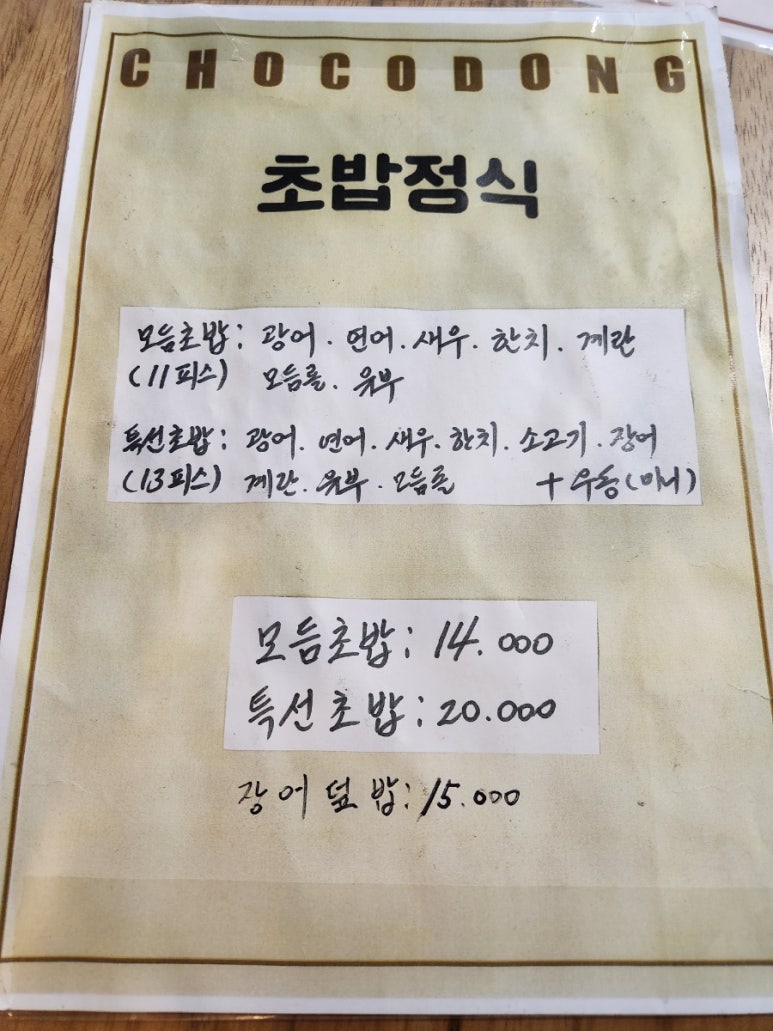 CHOCODONG
초밥정식
모듬초밥: 광어. 연어. 새우. 한치. 계란
(11피스) 모듬롤. 유부
특선초밥: 광어. 연어. 새우. 한치. 소고기. 장어
(13피스) 계란. 유부. 모듬롤 + 우동(미니)
모듬초밥: 14.000
특선초밥: 20.000
장어덮밥: 15.000